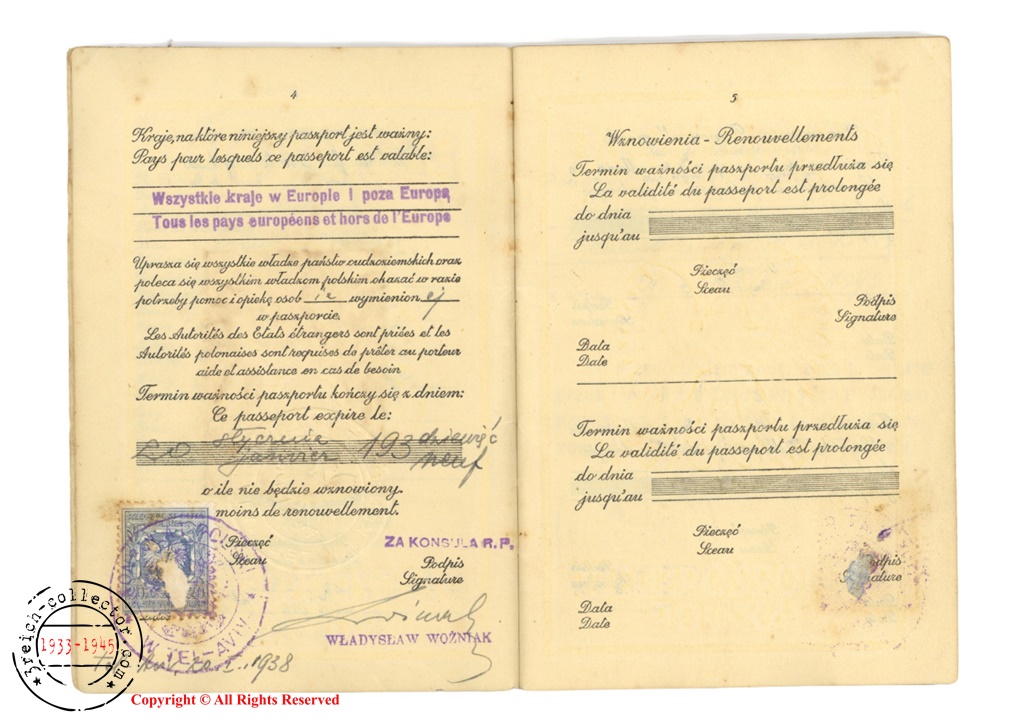 4
Kraje, na które niniejszy paszport jest ważny:
Pays pour lesquels ce passeport est valable:
Wszystkie kraje w Europie i poza Europą
Tous les pays européens et hors de l'Europe
Uprasza się wszystkie władze państw cudzoziemskich oraz
poleca się wszystkim władzom polskim okazać w razie
potrzeby pomoc i opiekę osob ie wymienion ej
w paszporcie.
Les Autorités des Etats étrangers sont priées et les
Autorités polonaises sont requises de prêter au porteur
aide et assistance en cas de besoin
Termin ważności paszportu kończy się z dniem:
Ce passeport expire le:
20 stycznia 193 dziewięć
janvier neuf
o ile nie będzie wznowiony.
moins de renouvellement.
Pieczęć
Sceau
ZA KONSULA R.P.
Podpis
Signature
WŁADYSŁAW WOŹNIAK
W TEL-AVIV
1938
5
Wznowienia - Renouvellements
Termin ważności paszportu przedłuża się
La validité du passeport est prolongée
do dnia
jusqu'au
Pieczęć
Sceau
Podpis
Signature
Data
Date
Termin ważności paszportu przedłuża się
La validité du passeport est prolongée
do dnia
jusqu'au
Pieczęć
Sceau
Podpis
Signature
Data
Date
3reich-collector.com
1933-1945
Copyright © All Rights Reserved